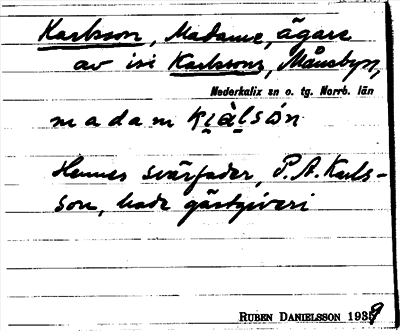 Karlsson, Madame, ägare
av isi Karlssons, Månsbyn,
Nederkalix sn o. tg. Norrb. län
madam kalsón
Hennes svärfader, P. A. Karls-
son, hade gästgiveri
RUBEN DANIELSSON 1939